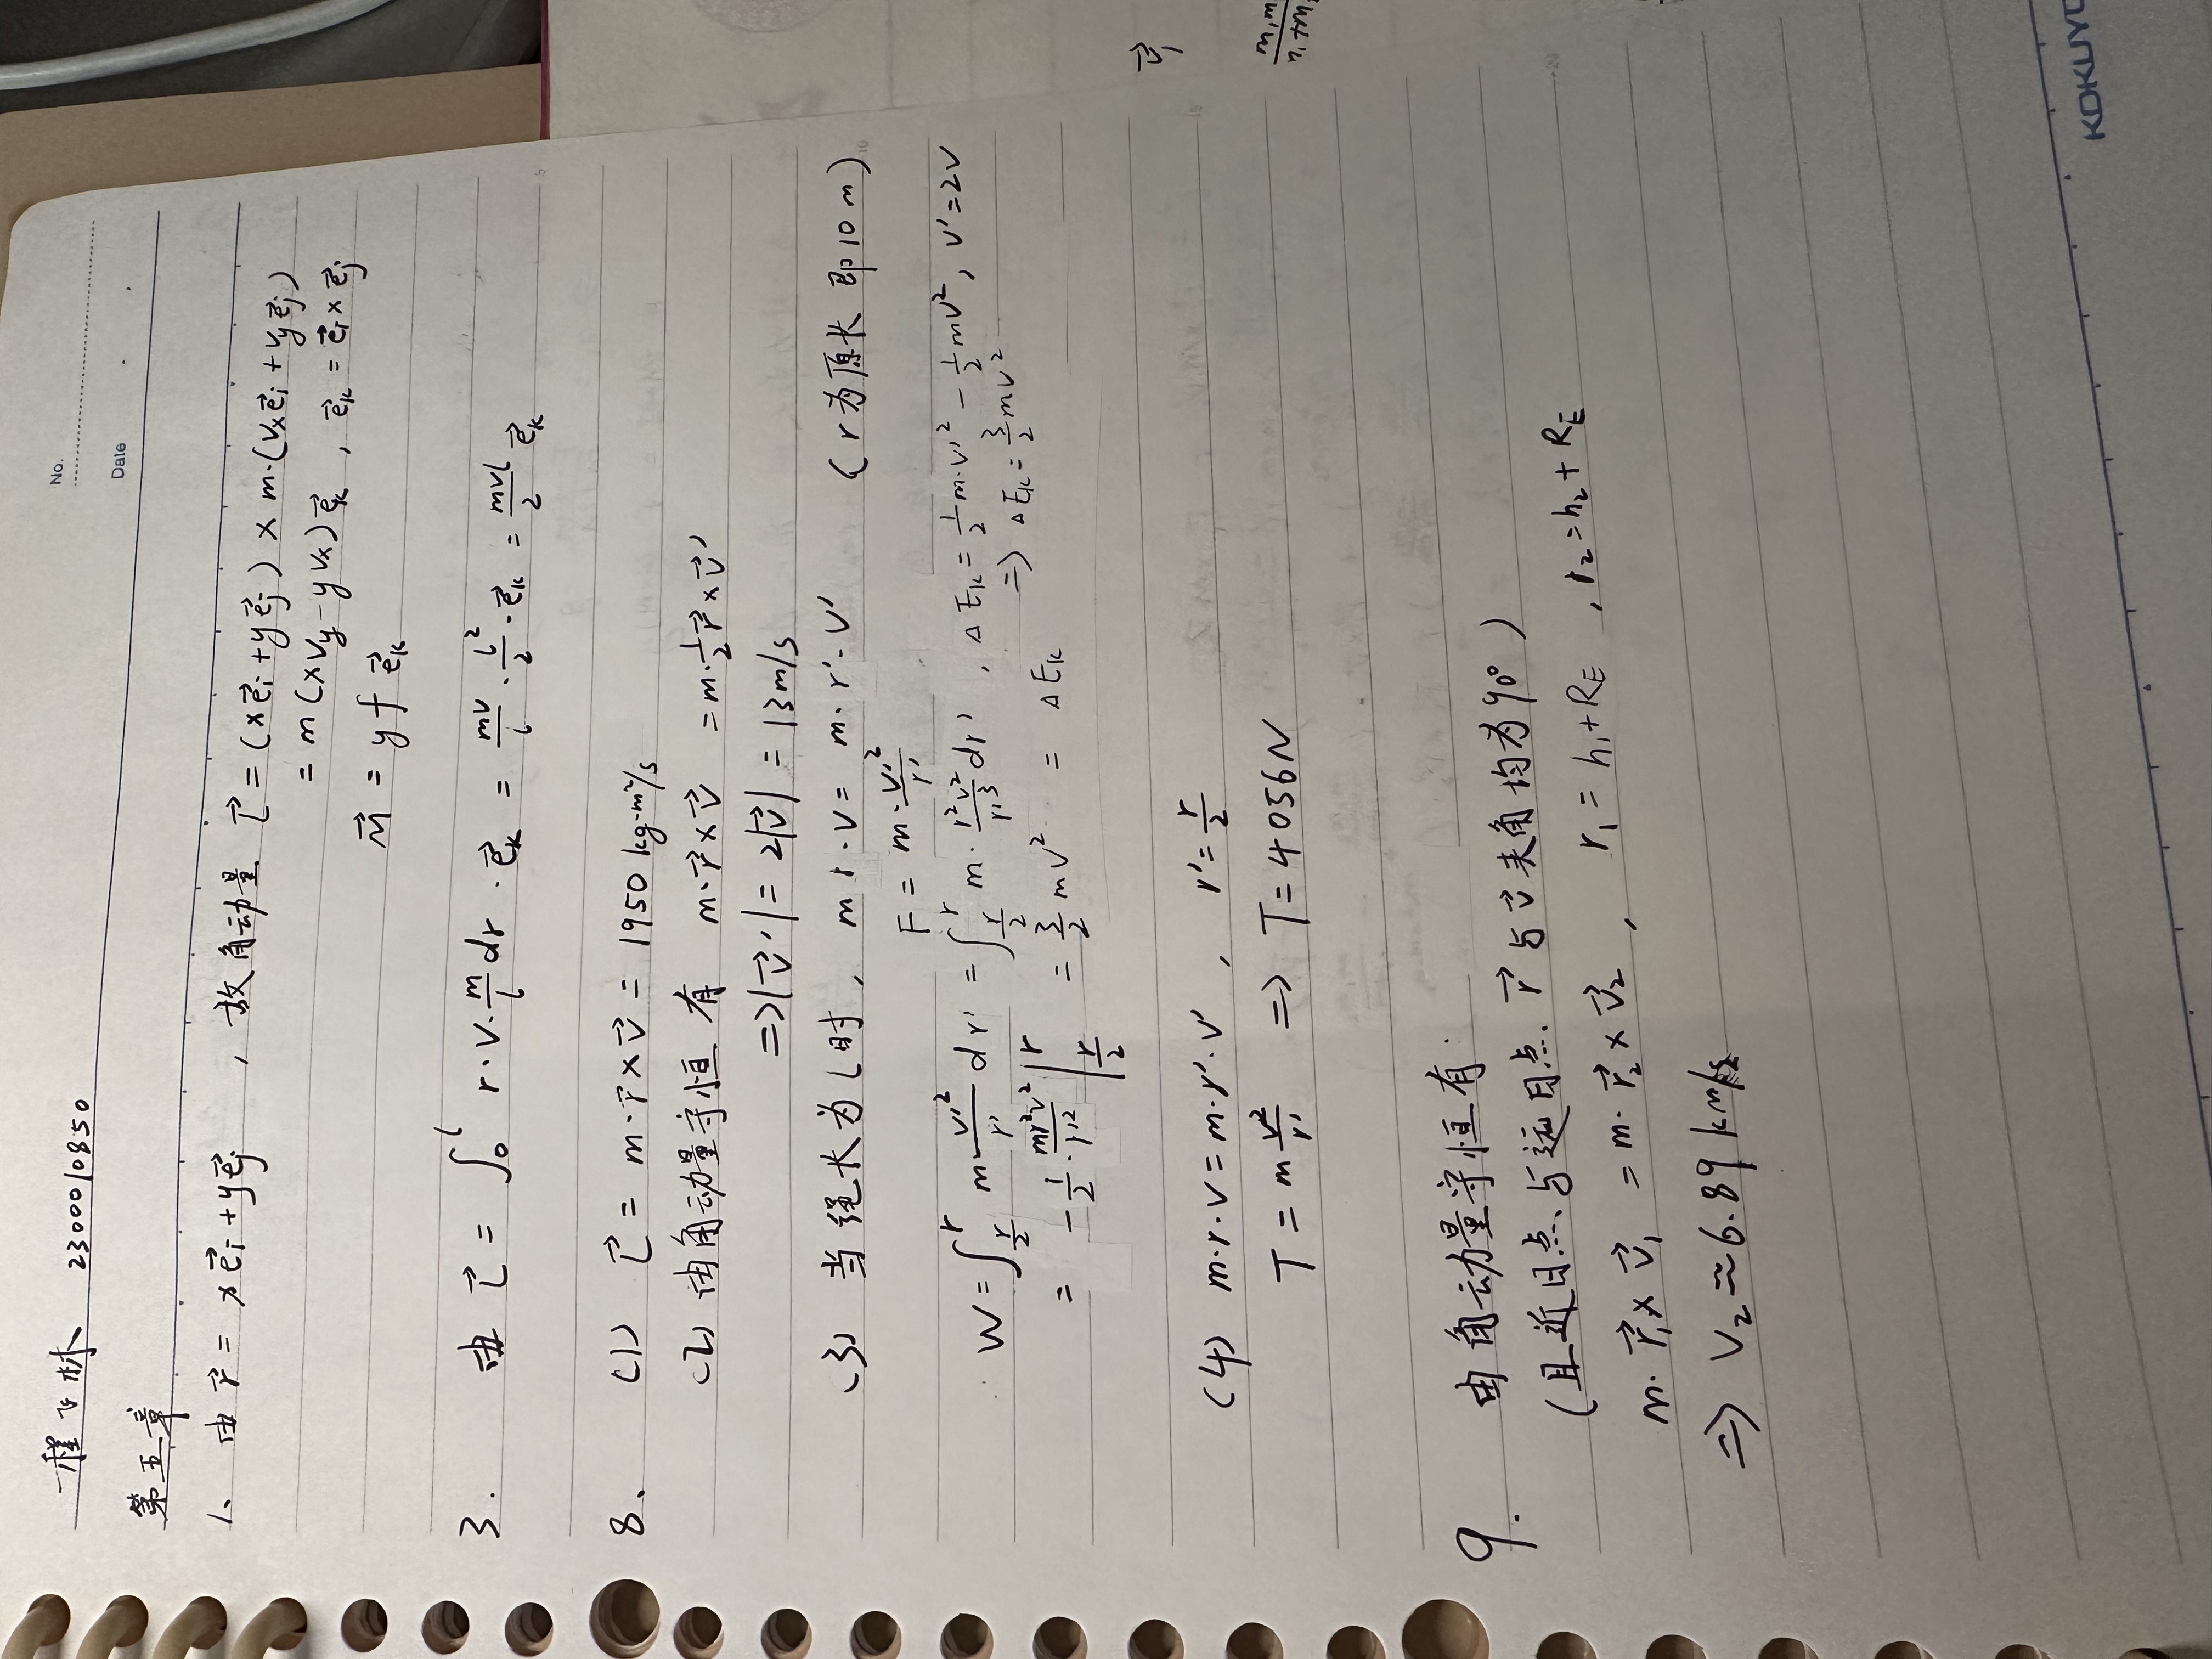 程飞林 2300010850
No.
Date
第五章
1、 由 r⃗ = xe⃗i + ye⃗j ,故角动量 L⃗ = (xe⃗i + ye⃗j) × m·(vxe⃗i + vye⃗j)
= m(xvy - yvx)e⃗k , e⃗k = e⃗i × e⃗j
M⃗ = yf e⃗k
3. 由 L⃗ = ∫₀^l r·v·m/l dr · e⃗k = mv/l · l²/2 · e⃗k = mvl/2 e⃗k
8. (1) L⃗ = m·r⃗×v⃗ = 1950 kg·m²/s
(2) 由角动量守恒 有 m·r⃗×v⃗ = m·1/2 r⃗×v⃗'
=> |v⃗'| = 2|v⃗| = 13m/s
(3) 当绳长为l时, mr·v = m·r'·v' (r为原长 即10m)
F = m·v'²/r'
W = ∫_{r/2}^{r} m v'²/r' dr' = ∫_{r/2}^{r} m · r²v²/r'³ dr' , ΔEk = 1/2 m·v'² - 1/2 mv², v'=2v
=> ΔEk = 3/2 mv²
= -1/2 · mr²v²/r'² |_{r/2}^{r} = 3/2 mv² = ΔEk
(4) m·r·v = m·r'·v' , r' = r/2
T = m v²/r' => T = 4056N
9. 由角动量守恒有
(且近日点、与远日点. r⃗与v⃗夹角均为90°)
m·r⃗₁×v⃗₁ = m·r⃗₂×v⃗₂ , r₁ = h₁+RE , r₂ = h₂+RE
=> v₂ ≈ 6.89 km/s
v⃗₁
KOKUYO